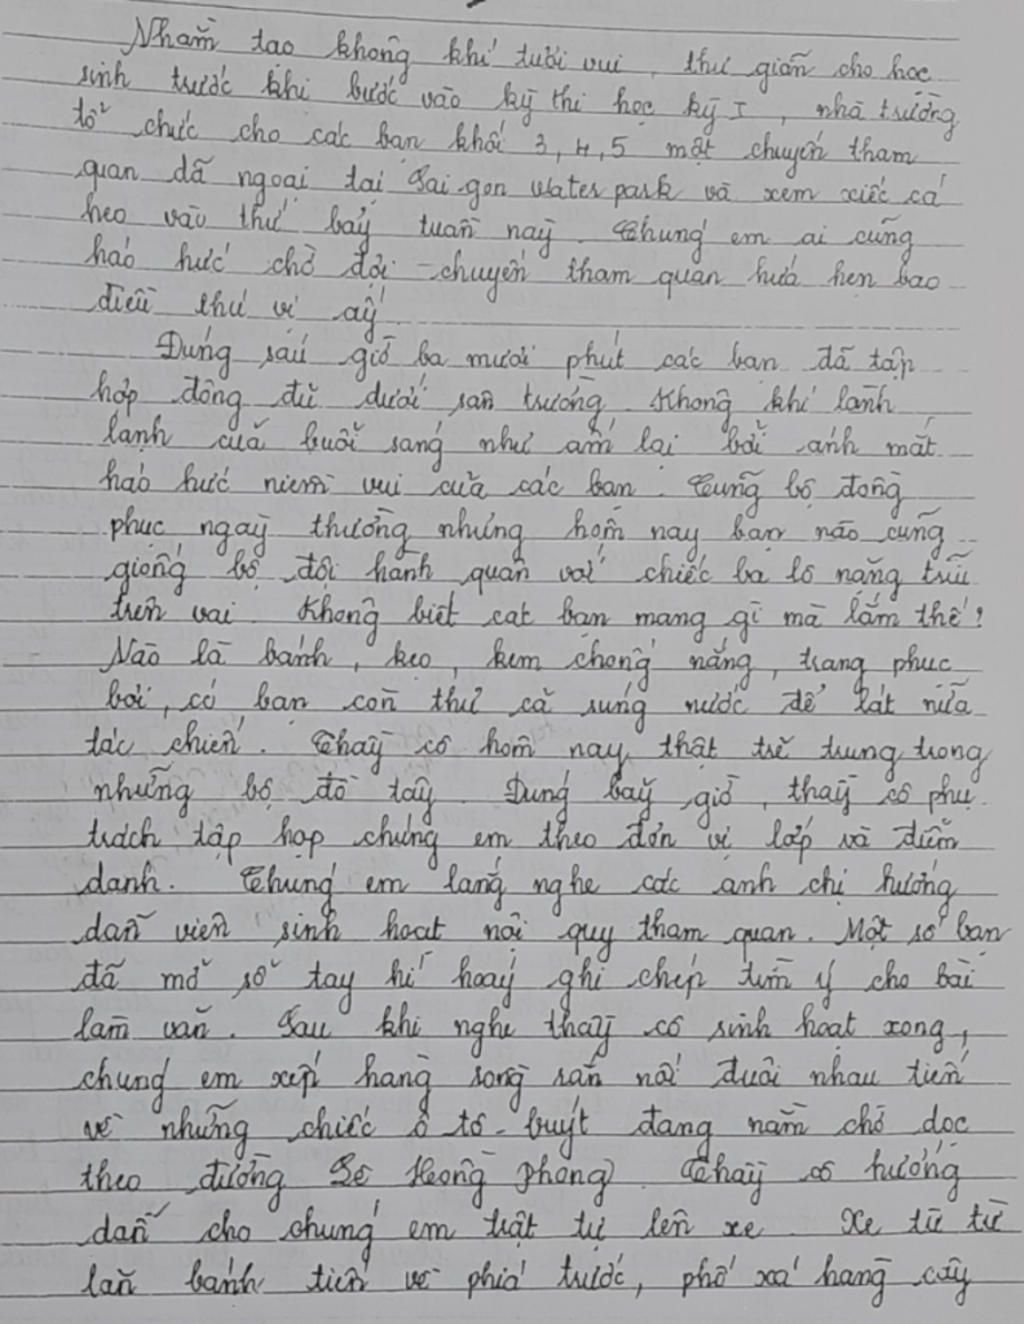 Nhằm tạo không khí tươi vui, thư giãn cho học
sinh trước khi bước vào kỳ thi học kỳ I, nhà trường
tổ chức cho các bạn khối 3, 4, 5 một chuyến tham
quan dã ngoại tại Sai gon Water park và xem xiếc cá
heo vào thứ bảy tuần này. Chúng em ai cũng
háo hức chờ đợi chuyến tham quan hứa hẹn bao
điều thú vị ấy
Đúng sáu giờ ba mươi phút các bạn đã tập
hợp đông đủ dưới sân trường. Không khí lành
lạnh của buổi sáng như ấm lại bởi ánh mắt
háo hức niềm vui của các bạn. Cũng bộ đồng
phục ngày thường nhưng hôm nay bạn nào cũng
giống bộ đội hành quân với chiếc ba lô nặng trĩu
trên vai Không biết các bạn mang gì mà lắm thế?
Nào là bánh, kẹo, kem chống nắng, trang phục
bơi, có bạn còn thủ cả súng nước để lát nữa
tác chiến. Thầy cô hôm nay thật trẻ trung trong
những bộ đồ tây. Đúng bảy giờ, thầy cô phụ
trách tập hợp chúng em theo đơn vị lớp và điểm
danh. Chúng em lắng nghe các anh chị hướng
dẫn viên sinh hoạt nội quy tham quan. Một số bạn
đã mở sổ tay hí hoáy ghi chép tìm ý cho bài
làm văn. Sau khi nghe thầy cô sinh hoạt xong,
chúng em xếp hàng song sẵn nối đuôi nhau tiến
về những chiếc ô tô buýt đang nằm chờ dọc
theo đường Lê Hồng Phong. Thầy cô hướng
dẫn cho chúng em trật tự lên xe. Xe từ từ
lăn bánh tiến về phía trước, phố xá hàng cây